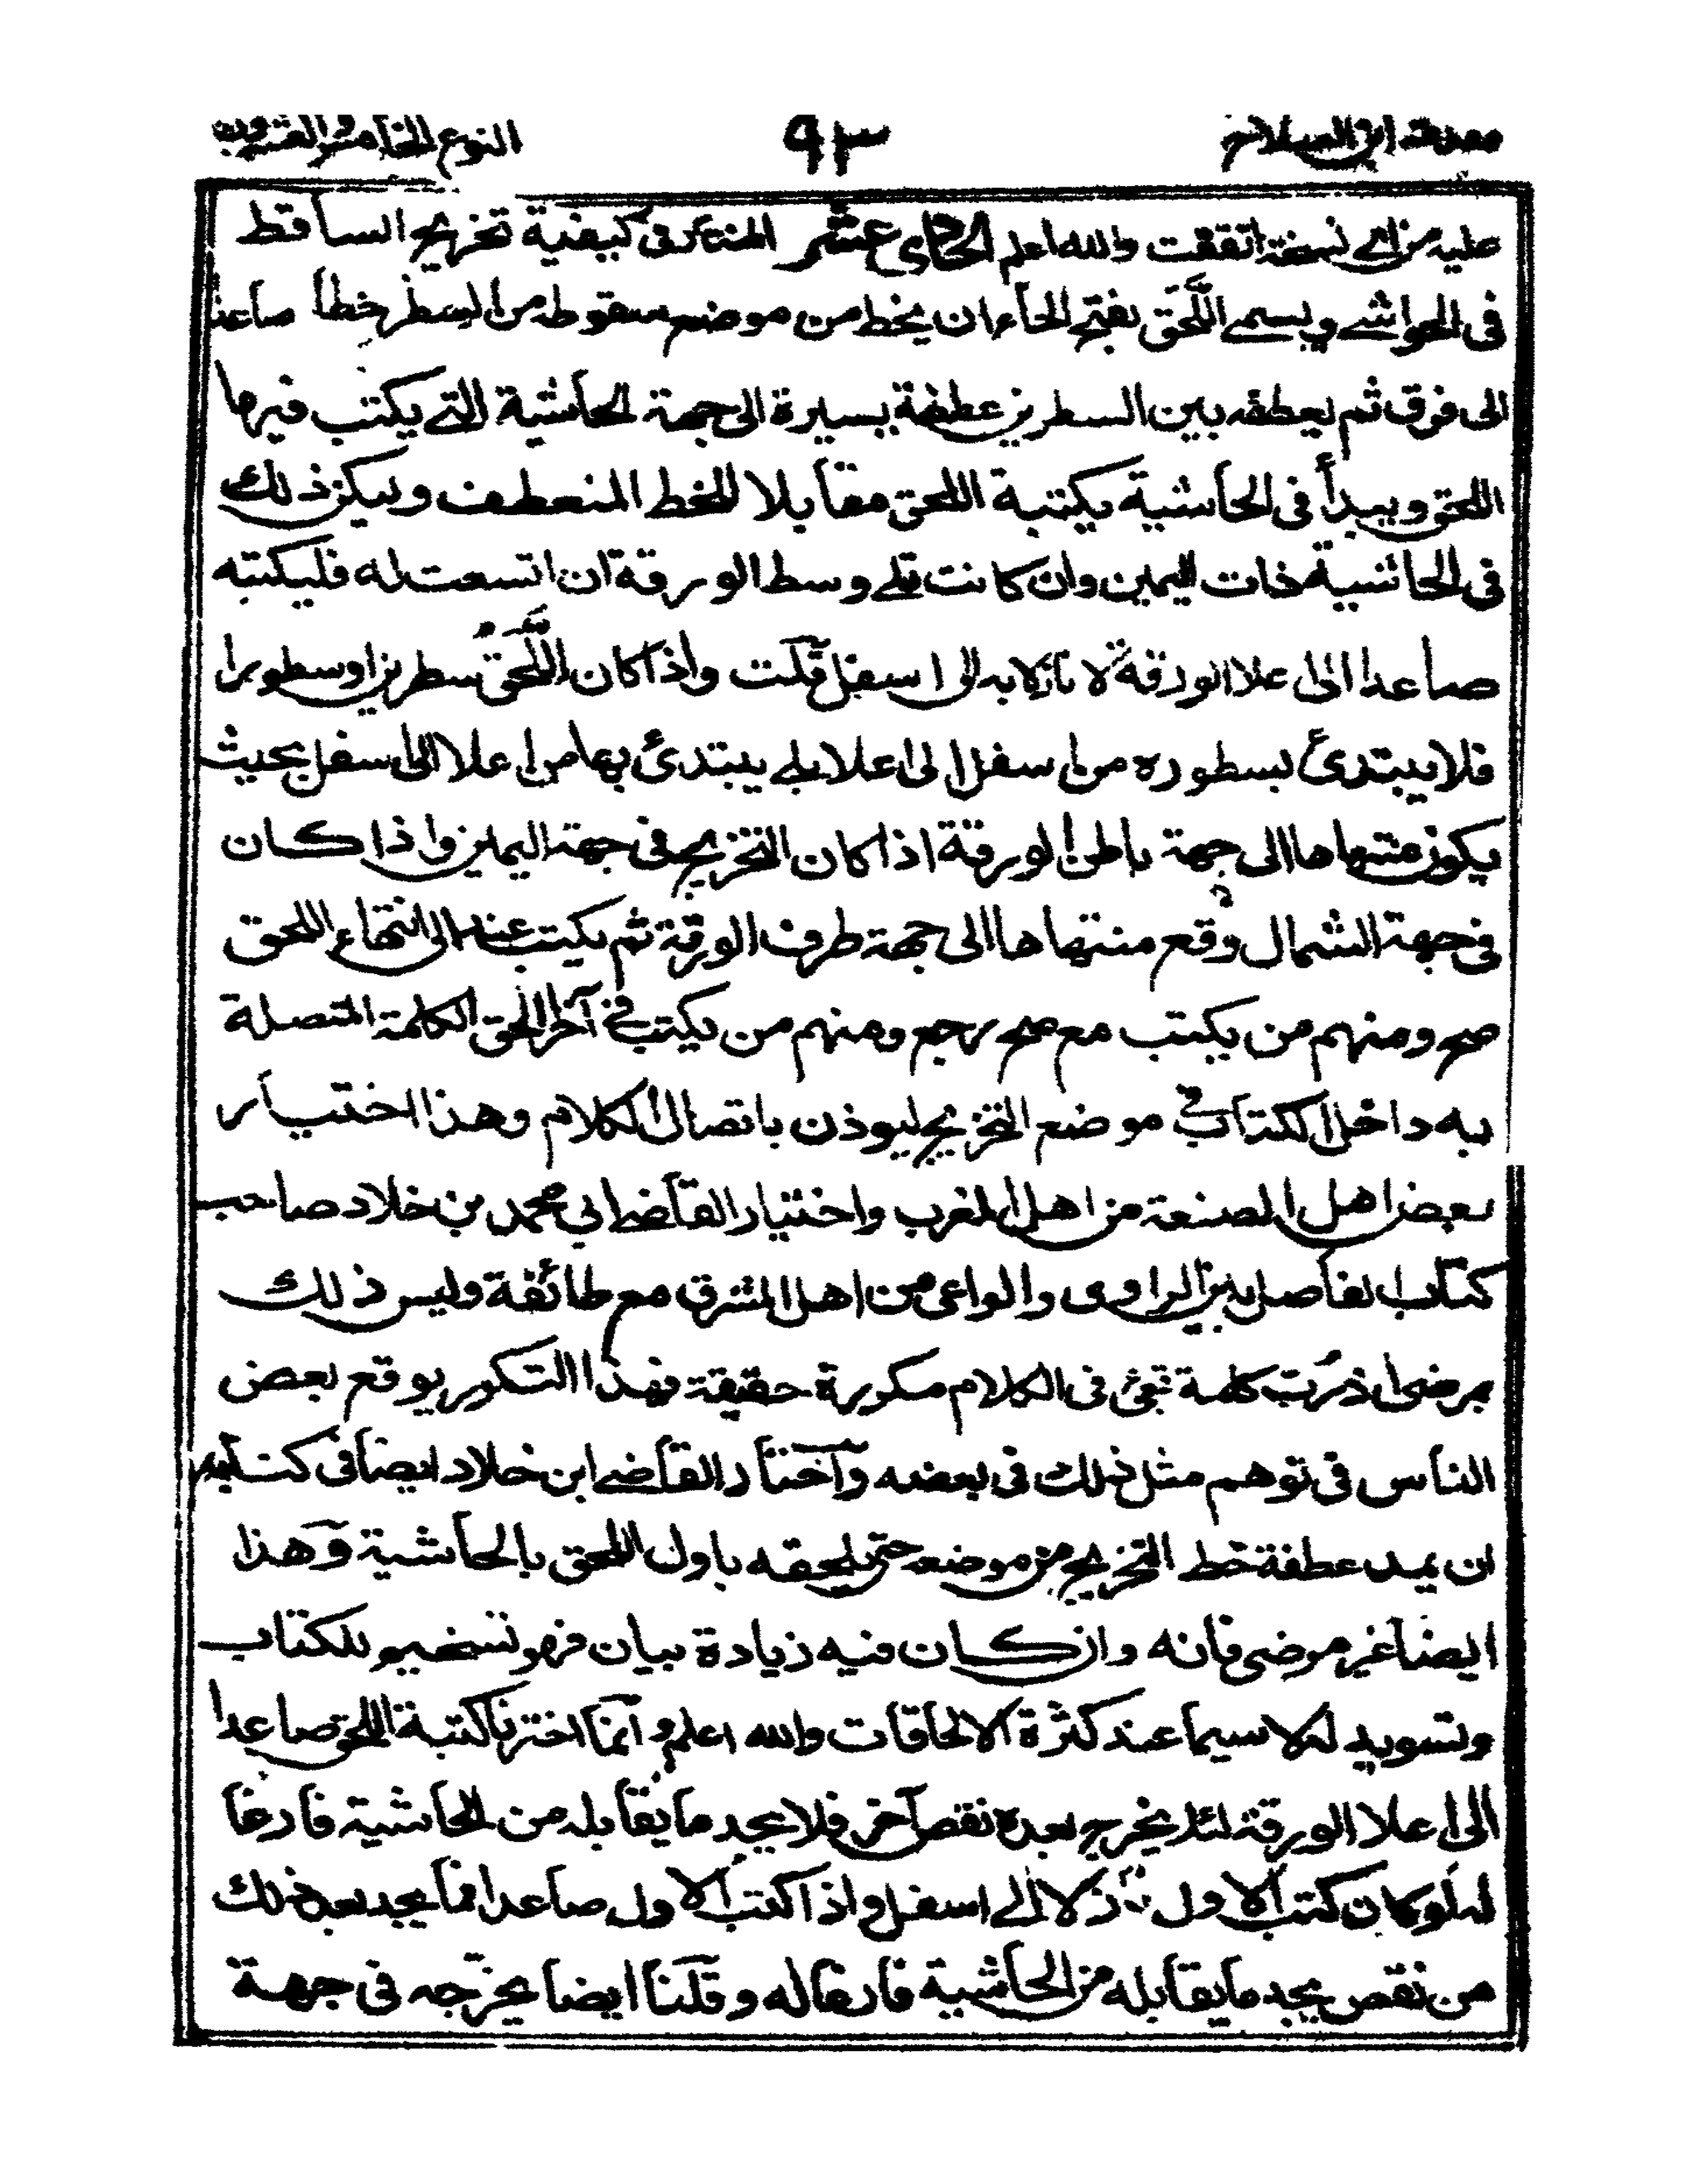 مقدمة ابن الصلاح ٩٣ النوع الخامس والعشرون
عليه من اي نسخة اتفقت والله اعلم الحادي عشر المختار في كيفية تخريج الساقط
في الحواشي ويسمى اللَّحَق بفتح الحاء ان يخط من موضع سقوطه من السطر خطا صاعدا
الى فوق ثم يعطفه بين السطرين عطفة يسيرة الى جهة الحاشية التي يكتب فيها
اللحق ويبدأ في الحاشية بكتبة اللحق مقابلا للخط المنعطف وليكن ذلك
في الحاشية ذات اليمين وان كانت تلي وسط الورقة ان اتسعت له فليكتبه
صاعدا الى اعلا الورقة لا نازلا به الى اسفل قلت واذا كان اللَّحَقُ سطرين او سطورا
فلا يبتدئ بسطوره من اسفل الى اعلا بل يبتدئ بها من اعلا الى اسفل بحيث
يكون منتهاها الى جهة باطن الورقة اذا كان التخريج في جهة اليمين واذا كان
في جهة الشمال وقع منتهاها الى جهة طرف الورقة ثم يكتب عند انتهاء اللحق
صح ومنهم من يكتب مع صح رجع ومنهم من يكتب في آخر اللحق الكلمة المتصلة
به داخل الكتاب في موضع التخريج ليوذن باتصال الكلام وهذا اختيار
بعض اهل الصنعة من اهل المغرب واختيار القاضي ابي محمد بن خلاد صاحب
كتاب الفاصل بين الراوى والواعى من اهل المشرق مع طائفة وليس ذلك
بمرضى اذ رُبَّ كلمة تجئ في الكلام مكررة حقيقة فهذا التكرير يوقع بعض
الناس في توهم مثل ذلك في بعضه واختار القاضي ابن خلاد ايضا في كتابه
ان يمد عطفة خط التخريج من موضعه حتى يلحقه باول اللحق بالحاشية وهذا
ايضا غير مرضى فانه وان كان فيه زيادة بيان فهو تسخيم للكتاب
وتسويد له لا سيما عند كثرة الالحاقات والله اعلم و انما اخترنا كتبة اللحق صاعدا
الى اعلا الورقة لئلا يخرج بعده نقص آخر فلا يجد ما يقابله من الحاشية فارغا
له لو كان كتب الاول نازلا الى اسفل واذا كتب الاول صاعدا فما يجد بعد ذلك
من نقص يجد ما يقابله من الحاشية فارغا له وقلنا ايضا يخرجه في جهة